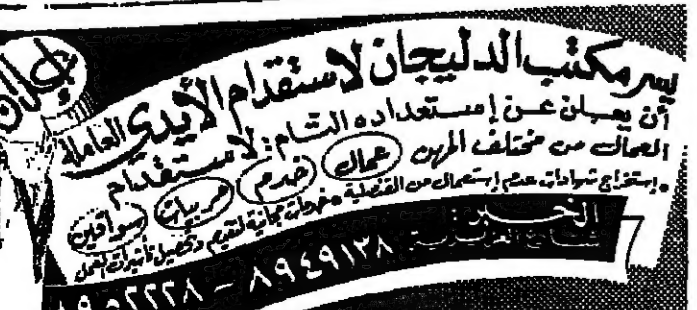 إعلان
يسر مكتب الدليجان لاستقدام الأيدي العاملة
أن يعلن عن إستعداده التام: لاستقدام
العمال من مختلف المهن عمال خدم مربيات سواقين
إستخراج شهادات عدم إستعمال من القنصلية خدمات مجانية لتقديم وتحصيل تأشيرات العمل
الخبر:
شارع العزيزية
٨٩٤٩١٢٨ - ٨٩٥٢٢٢٨